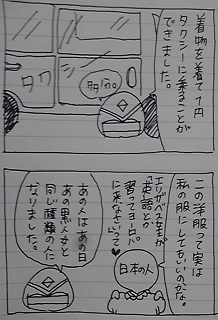 着物を着て1円
タクシーに乗ることが
できました。
タク
多分。
この洋服って実は
私の服にしてもいいのかな。
エリザベス女王が
「英語とか
習ってヨーロッパ
に来なさい」って♥
日本の人
あの人はあの日
あの黒人女と
同じ種類の人に
なりました。